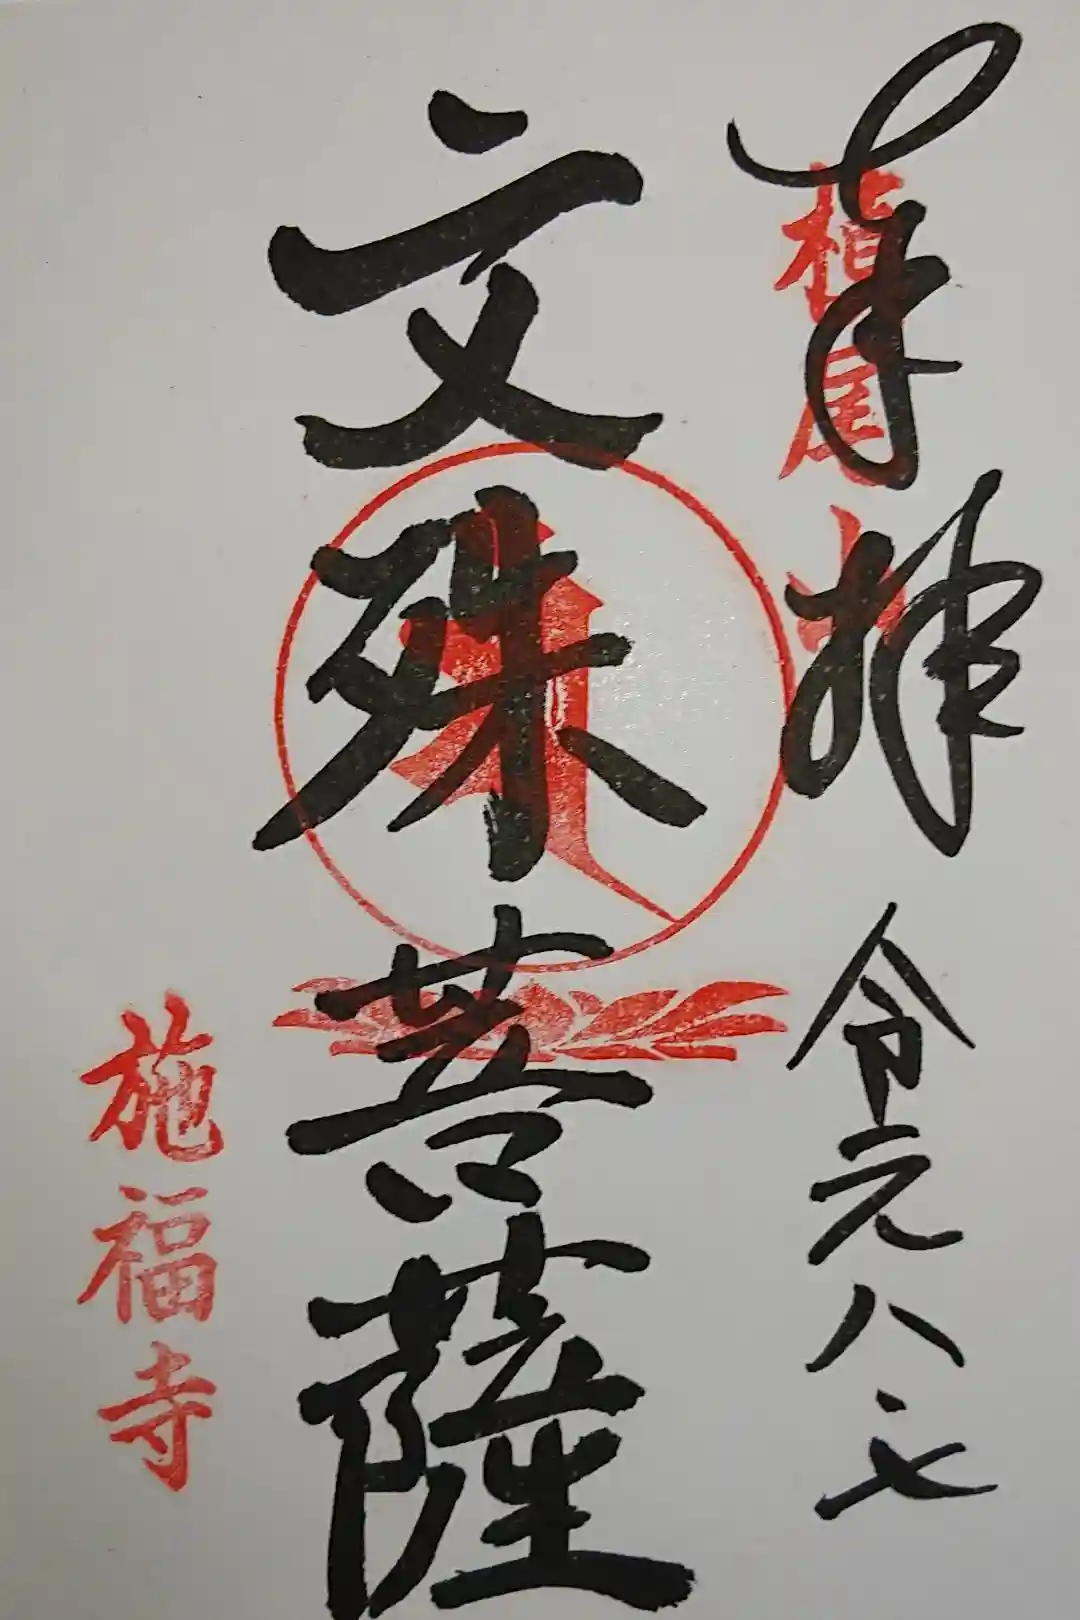 奉拝 令元八七
槇尾山
文殊菩薩
施福寺